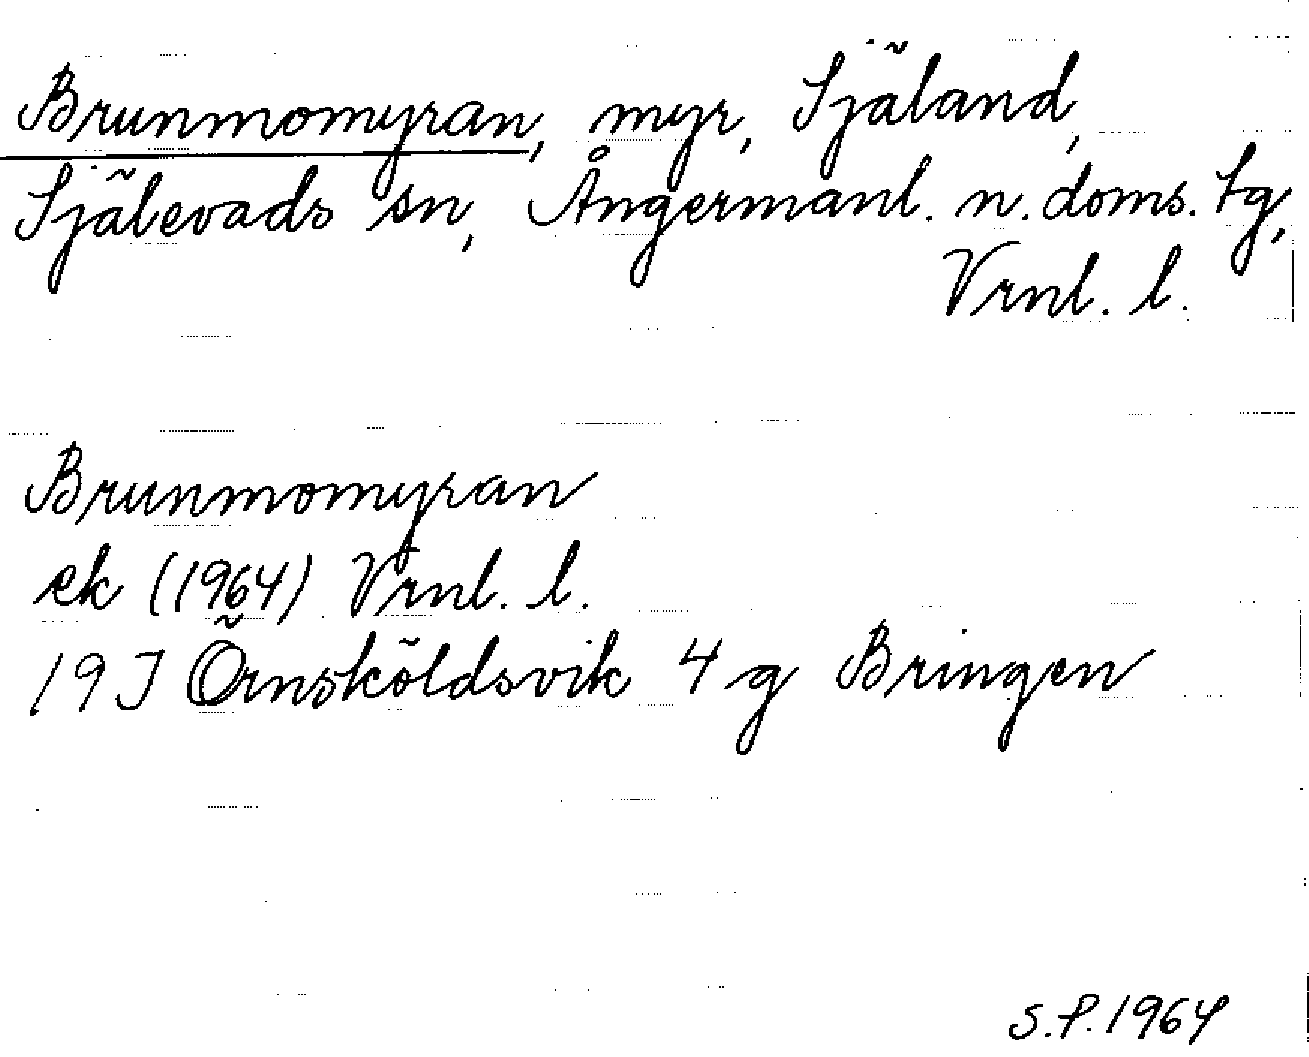 Brunmomyran, myr, Själand,
Själevads sn, Ångermanl. n. doms. tg,
Vrnl. l.
Brunmomyran
ek (1964) Vrnl. l.
19 J Örnsköldsvik 4 g Bringen
S.P. 1964